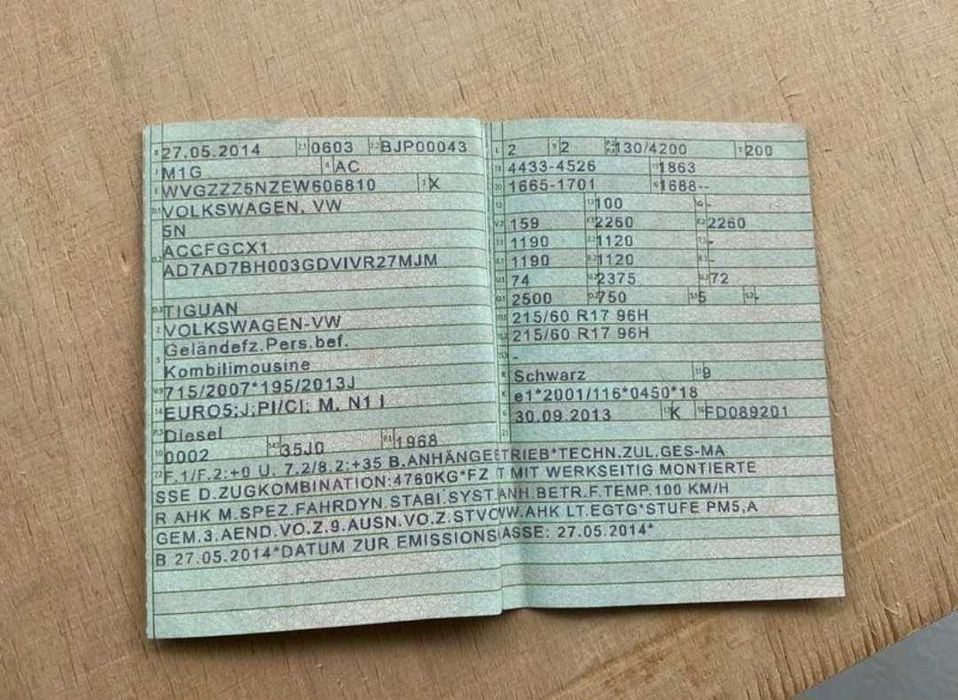 27.05.2014 0603 BJP00043
M1G AC
WVGZZZ5NZEW606810 X
VOLKSWAGEN, VW
5N
ACCFGCX1
AD7AD7BH003GDVIVR27MJM
TIGUAN
VOLKSWAGEN-VW
Geländefz.Pers.bef.
Kombilimousine
715/2007*195/2013J
EURO5;J;PI/CI; M, N1 I
Diesel
0002 35J0 1968
2 2 130/4200 200
4433-4526 1863
1665-1701 1688--
100 -
159 2260 2260
1190 1120 -
1190 1120 -
74 2375 72
2500 750 5 -
215/60 R17 96H
215/60 R17 96H
-
Schwarz 9
e1*2001/116*0450*18
30.09.2013 K FD089201
F.1/F.2:+0 U. 7.2/8.2:+35 B.ANHÄNGETRIEB*TECHN.ZUL.GES-MA
SSE D.ZUGKOMBINATION:4760KG*FZ T MIT WERKSEITIG MONTIERTE
R AHK M.SPEZ.FAHRDYN.STABI.SYST ANH.BETR.F.TEMP.100 KM/H
GEM.3.AEND.VO.Z.9.AUSN.VO.Z.STVO WW.AHK LT.EGTG*STUFE PM5,A
B 27.05.2014*DATUM ZUR EMISSIONS ASSE: 27.05.2014*